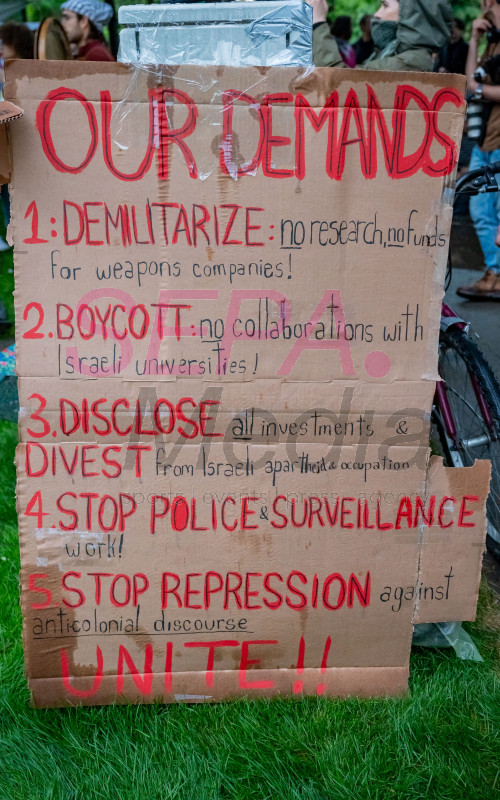 OUR DEMANDS
1: DEMILITARIZE: no research, no funds
for weapons companies!
2. BOYCOTT: no collaborations with
Israeli universities!
3. DISCLOSE all investments &
DIVEST from Israeli apartheid & occupation
4. STOP POLICE & SURVEILLANCE
work!
5. STOP REPRESSION against
anticolonial discourse
UNITE!!
SFPA.
Media
sports events press agency